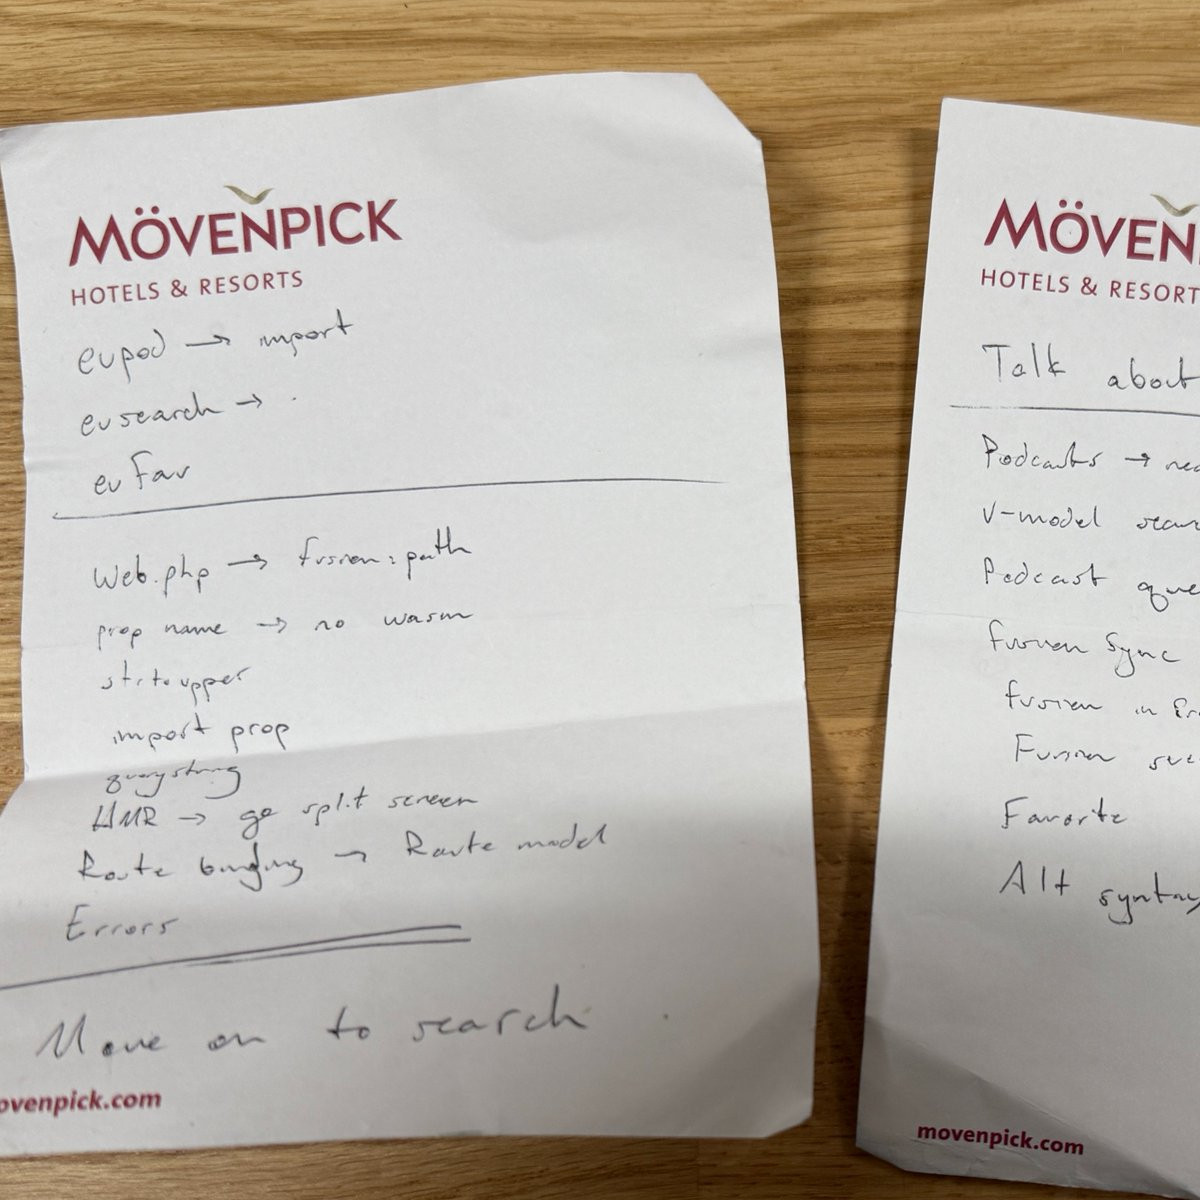 MÖVENPICK
HOTELS & RESORTS
evpod → import
evsearch → .
ev Fav
Web.php → fusion:path
prop name → no wasm
strtoupper
import prop
querystring
HMR → go split screen
Route binding → Route model
Errors
Move on to search
ovenpick.com
MÖVEN
HOTELS & RESORT
Talk about
Podcasts → rea
V-model sear
Podcast que
fusion Sync
fusion in
Fusion
Favorite
Alt syntax
movenpick.com